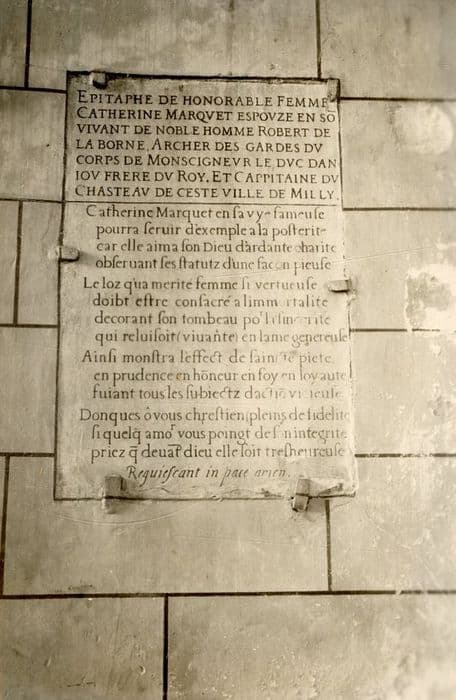 EPITAPHE DE HONORABLE FEMME
CATHERINE MARQVET ESPOVZE EN SO
VIVANT DE NOBLE HOMME ROBERT DE
LA BORNE, ARCHER DES GARDES DV
CORPS DE MONSCIGNEVR LE DVC DAN
IOV FRERE DV ROY, ET CAPPITAINE DV
CHASTEAV DE CESTE VILLE DE MILLY.
Catherine Marquet en sa vye fameuse
pourra seruir d'exemple a la posterite
car elle aima son Dieu d'ardante charite
obseruant ses statutz d'une facon pieuse
Le loz qu'a merite femme si vertueuse
doibt estre consacré a limmortalite
decorant son tombeau po'
qui reluisoit (viuante) en lame genereuse
Ainsi monstra l'effect de saincte piete
en prudence en hōneur en foy en loyaute
fuiant tous les subiectz dactiō vitieuse
Donques ô vous chrestien pleins de fidelite
si quelq amor vous poingt de son integrite
priez q̄ deuāt dieu elle soit tresheureuse
Requiescant in pace amen.